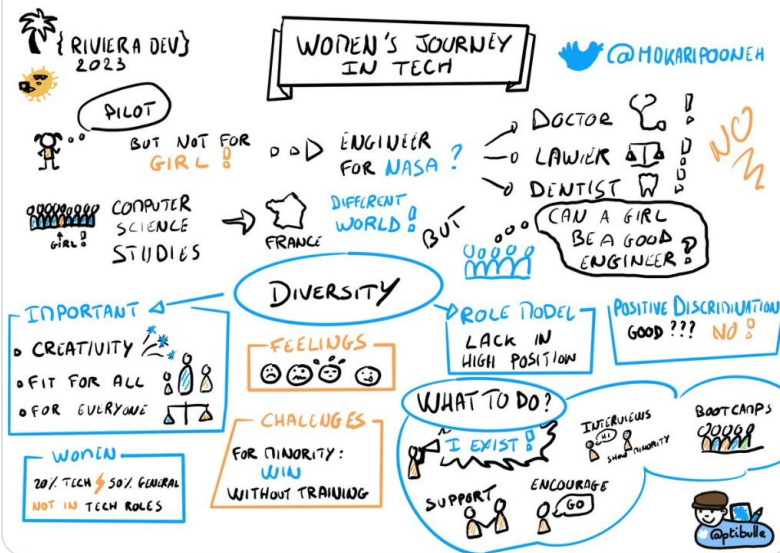 {RIVIERA DEV}
2023
WOMEN'S JOURNEY
IN TECH
@MOKARIPOONEH
PILOT
BUT NOT FOR
GIRL!
ENGINEER
FOR NASA?
DOCTOR !
LAWIER !
DENTIST !
NO
GIRL!
COMPUTER
SCIENCE
STUDIES
FRANCE
DIFFERENT
WORLD!
BUT
CAN A GIRL
BE A GOOD
ENGINEER?
DIVERSITY
IMPORTANT
• CREATIVITY
• FIT FOR ALL
• FOR EVERYONE
FEELINGS
ROLE MODEL
LACK IN
HIGH POSITION
POSITIVE DISCRIMINATION
GOOD ??? NO!
WOMEN
20% TECH 50% GENERAL
NOT IN TECH ROLES
CHALENGES
FOR MINORITY:
WIN
WITHOUT TRAINING
WHAT TO DO?
I EXIST!
INTERVIEWS
HI
SHOW MINORITY
BOOTCAMPS
SUPPORT
ENCOURAGE
GO
@ptibulle